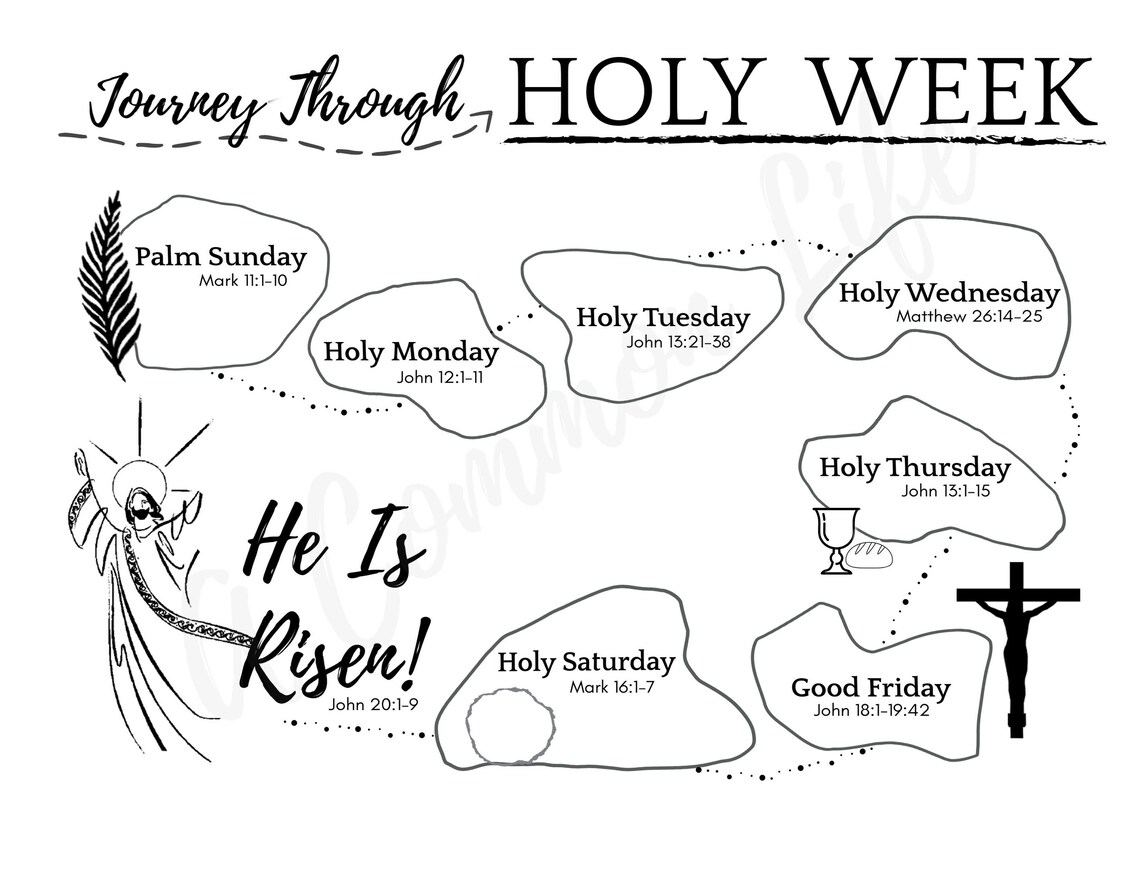 Journey Through HOLY WEEK
Palm Sunday
Mark 11:1-10
Holy Monday
John 12:1-11
Holy Tuesday
John 13:21-38
Holy Wednesday
Matthew 26:14-25
Holy Thursday
John 13:1-15
Good Friday
John 18:1-19:42
Holy Saturday
Mark 16:1-7
He Is
Risen!
John 20:1-9
a Common Life